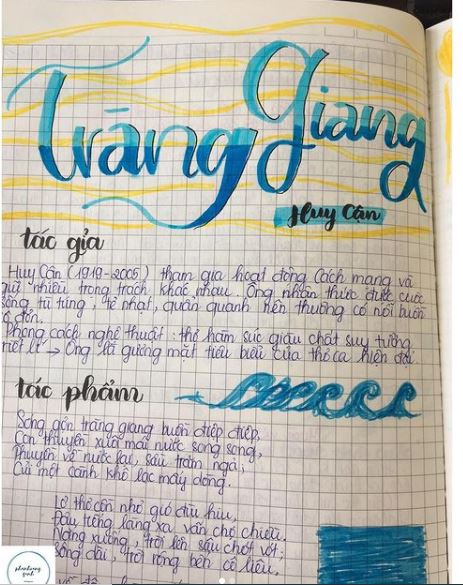 Tràng Giang
Huy Cận
tác giả
Huy Cận (1919-2005) tham gia hoạt động Cách mạng và
giữ nhiều trọng trách khác nhau. Ông nhận thức được cuộc
sống tù túng, tẻ nhạt, quẩn quanh nên thường có nỗi buồn
cô đơn.
Phong cách nghệ thuật: thơ hàm súc giàu chất suy tưởng
triết lí → Ông là gương mặt tiêu biểu của thơ ca hiện đại
tác phẩm
Sóng gợn tràng giang buồn điệp điệp,
Con thuyền xuôi mái nước song song,
Thuyền về nước lại, sầu trăm ngả;
Củi một cành khô lạc mấy dòng.
Lơ thơ cồn nhỏ gió đìu hiu,
Đâu tiếng làng xa vãn chợ chiều.
Nắng xuống, trời lên sâu chót vót;
Sông dài, trời rộng, bến cô liêu.